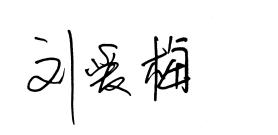 刘爱梅